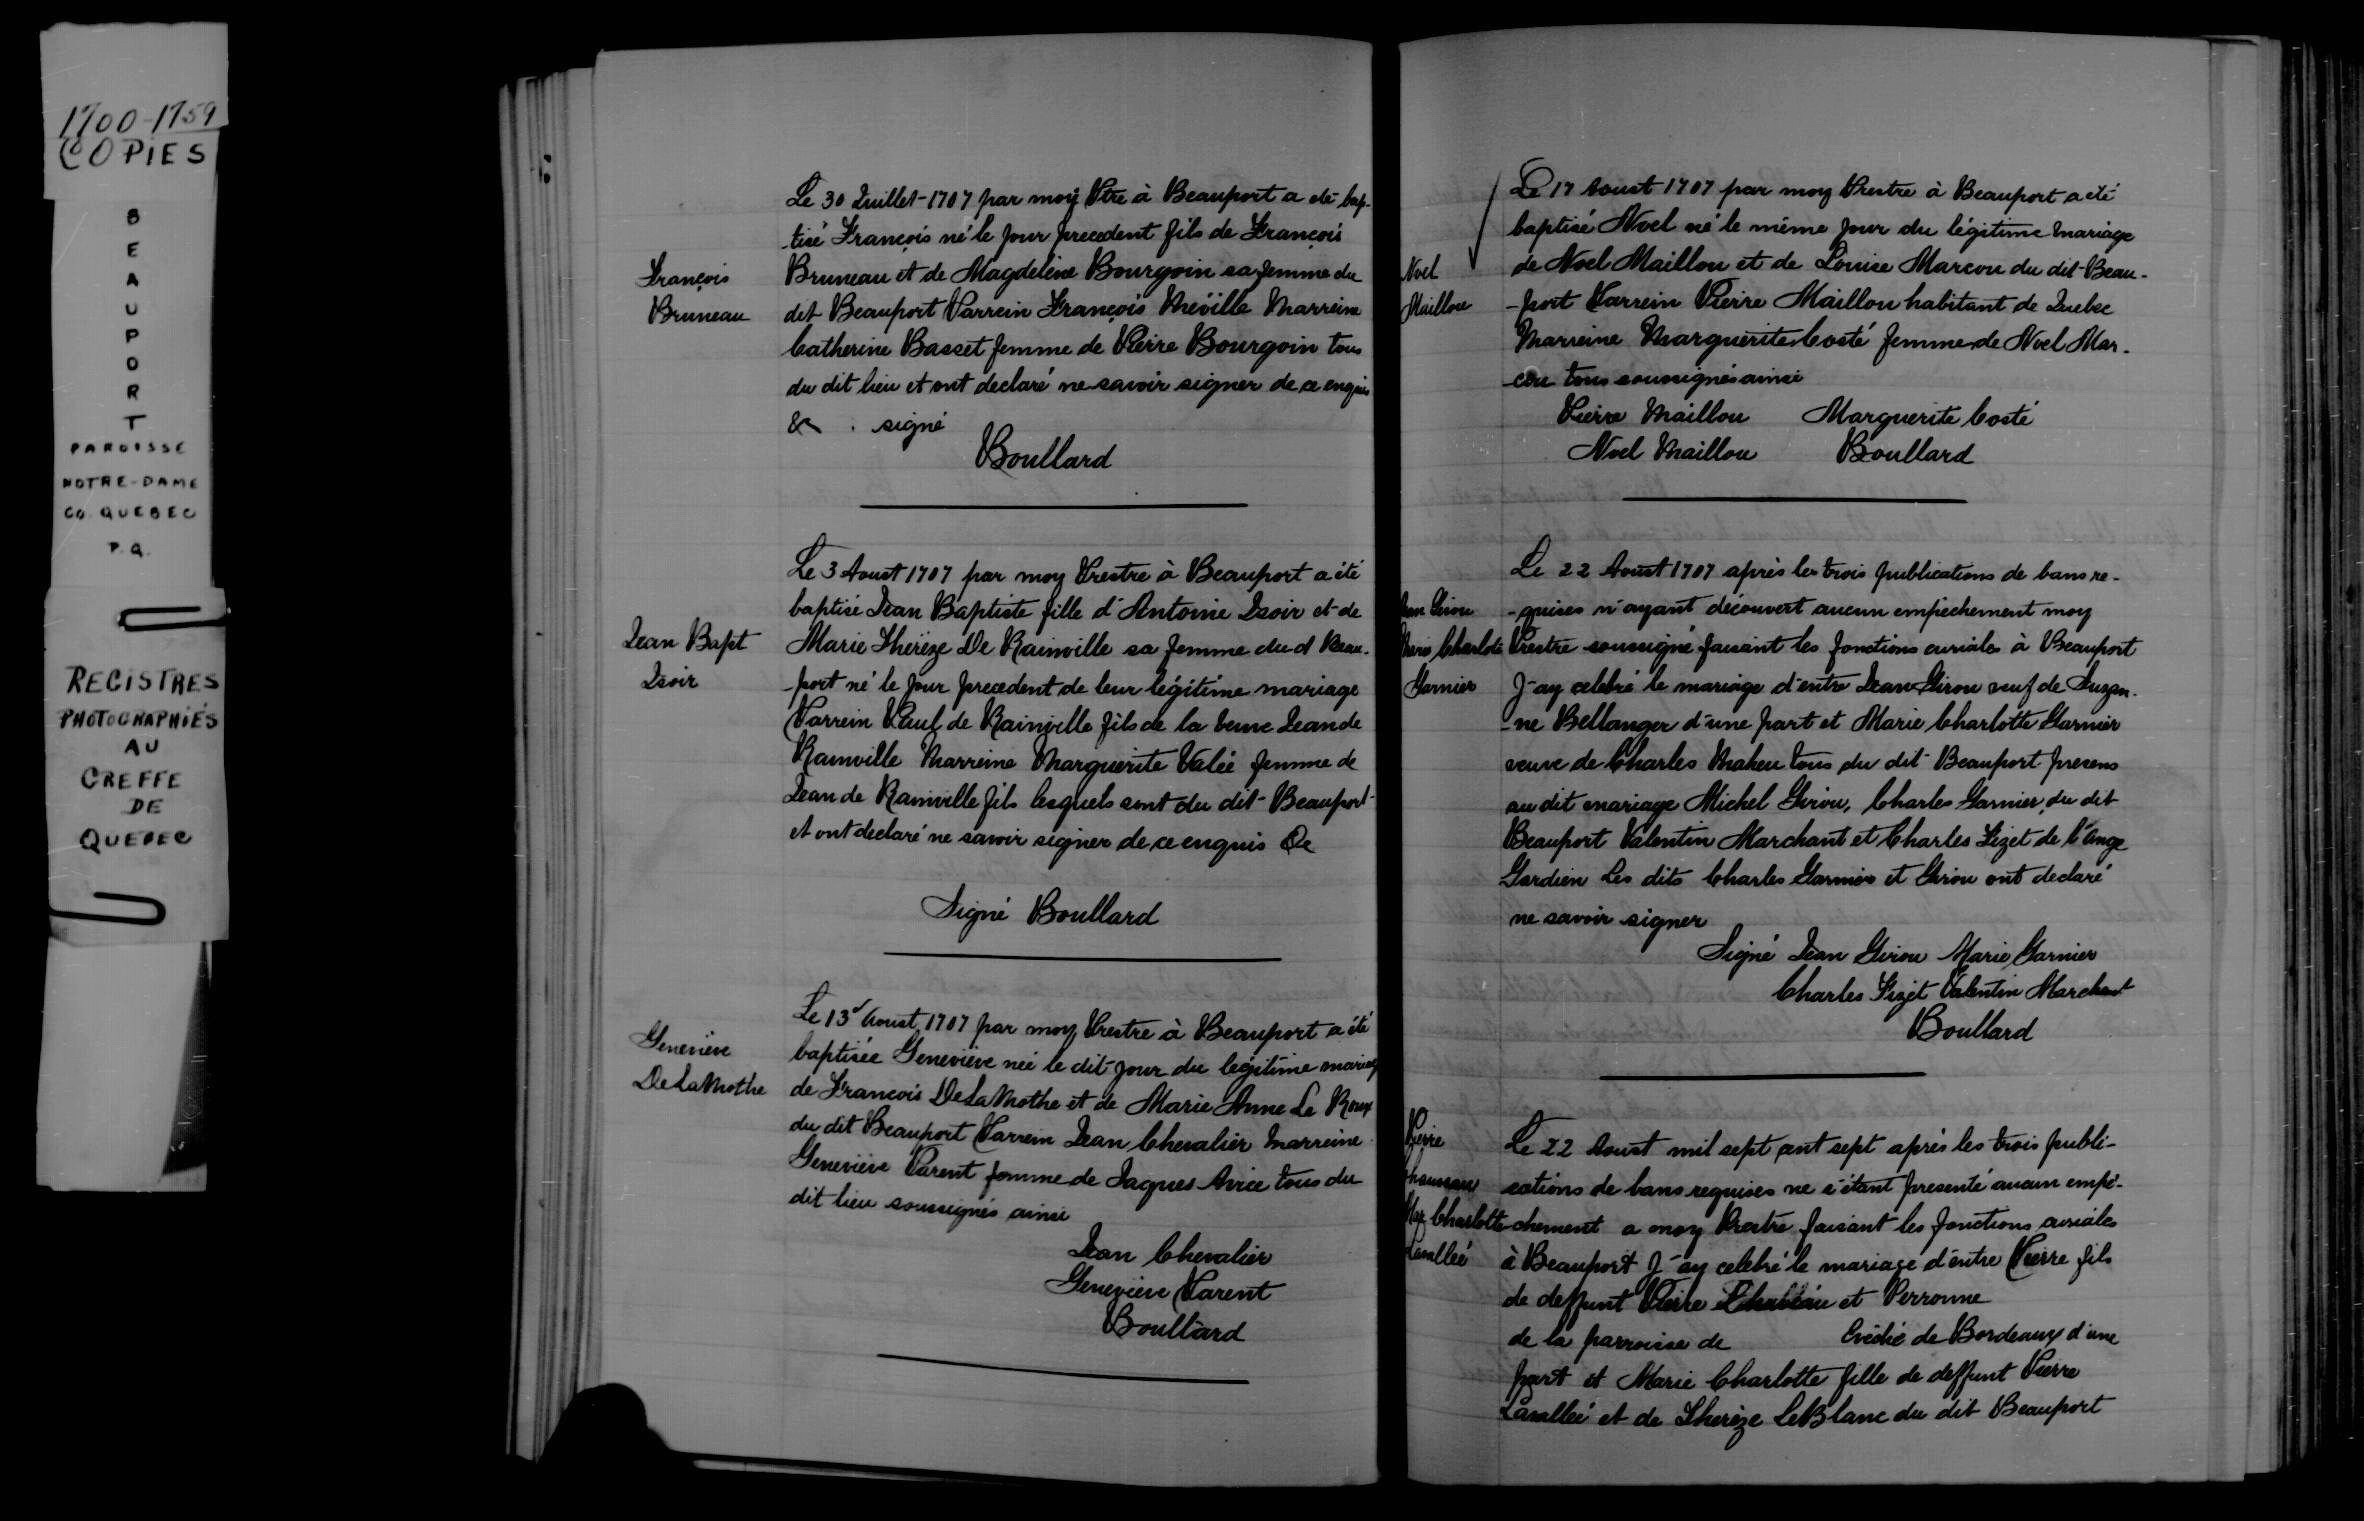 1700-1759
COPIES
BEAUPORT
PAROISSE
NOTRE-DAME
CO. QUEBEC
P.Q.
REGISTRES
PHOTOGRAPHIÉS
AU
GREFFE
DE
QUEBEC
Le 30 Juillet 1707 par moy Ptre à Beauport a été bap-
-tisé François né le jour precedent fils de François
François
Bruneau
Bruneau et de Magdelene Bourgoin sa femme du
dit Beauport Parrein François Méville Marreine
Catherine Basset femme de Pierre Bourgoin tous
du dit lieu et ont declaré ne savoir signer de ce enquis
& signé
Boullard
Le 3 Aoust 1707 par moy Prestre à Beauport a été
baptisé Jean Baptiste fille d'Antoine Isoir et de
Jean Bapt
Isoir
Marie Therèze De Rainville sa femme du d Beau-
-port né le jour precedent de leur légitime mariage
Parrein Paul de Rainville fils de la veuve Jean de
Rainville Marreine Marguerite Valée femme de
Jean de Rainville fils lesquels sont du dit Beauport
et ont declaré ne savoir signer de ce enquis &c
Signé Boullard
Geneviève
De LaMothe
Le 13e Aoust 1707 par moy Prestre à Beauport a été
baptisée Geneviève née le dit jour du légitime mariag
de François De LaMothe et de Marie Anne Le Roux
du dit Beauport Parrein Jean Chevalier Marreine
Geneviève Parent femme de Jaques Avice tous du
dit lieu soussignés ainsi
Jean Chevalier
Geneviève Parent
Boullard
Le 17 Aoust 1707 par moy Prestre à Beauport a été
baptisé Noel né le même jour du légitime mariage
Noel
Maillou
de Noel Maillou et de Louise Marcou du dit Beau-
-port Parrein Pierre Maillou habitant de Quebec
Marreine Marguerite Costé femme de Noel Mar-
-cou tous soussignés ainsi
Pierre Maillou Marguerite Costé
Noel Maillou Boullard
Le 22 Aoust 1707 après les trois publications de bans re-
Jean Girou
Marie Charlote
Garnier
-quises n'ayant découvert aucun empêchement moy
Prestre soussigné faisant les fonctions curiales à Beauport
J'ay celebré le mariage d'entre Jean Girou veuf de Suzan-
-ne Bellanger d'une part et Marie Charlotte Garnier
veuve de Charles Maheu tous du dit Beauport presens
au dit mariage Michel Girou, Charles Garnier du dit
Beauport Valentin Marchant et Charles Fizet de l'Ange
Gardien Les dits Charles Garnier et Girou ont declaré
ne savoir signer
Signé Jean Girou Marie Garnier
Charles Fizet Valentin Marchant
Boullard
Pierre
Charlotte
Lavalleé
Le 22 Aoust mil sept cent sept après les trois publi-
cations de bans requises ne s'étant presenté aucun empê-
-chement a moy Prestre faisant les fonctions curiales
à Beauport J'ay celebré le mariage d'entre Pierre fils
de deffunt Pierre et Perronne
de la parroisse de Evêché de Bordeaux d'une
part et Marie Charlotte fille de deffunt Pierre
Lavalleé et de Therèze LeBlanc du dit Beauport